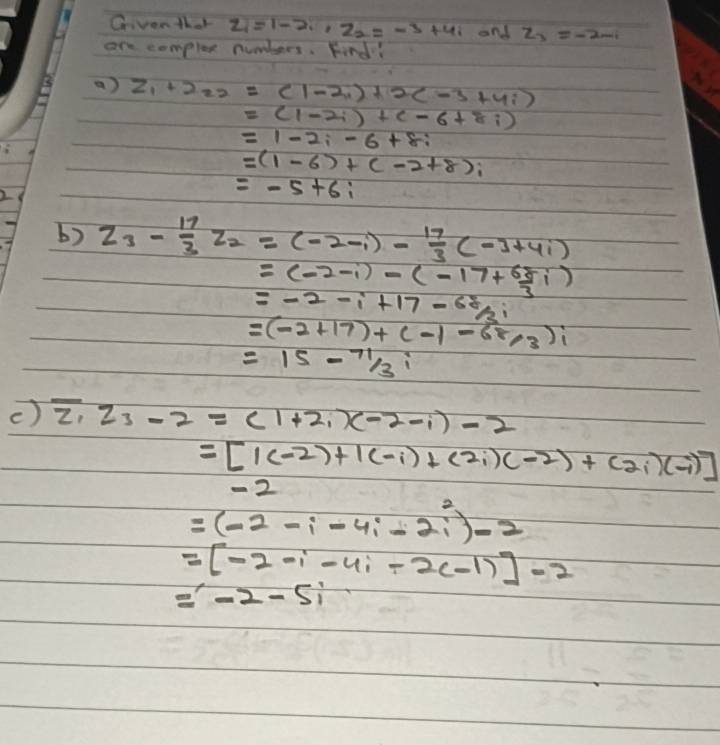 Given that z₁ = 1-2i, z₂ = -3+4i and z₃ = -2-i
are complex numbers. Find:
a) z₁ + 2z₂ = (1-2i) + 2(-3+4i)
= (1-2i) + (-6+8i)
= 1-2i-6+8i
= (1-6) + (-2+8)i
= -5+6i
b) z₃ - 17/3 z₂ = (-2-i) - 17/3 (-3+4i)
= (-2-i) - (-17 + 68/3 i)
= -2-i+17-68/3 i
= (-2+17) + (-1-68/3)i
= 15 - 71/3 i
c) z̄₁ z₃ - 2 = (1+2i)(-2-i) - 2
= [1(-2) + 1(-i) + (2i)(-2) + (2i)(-i)]
-2
= (-2-i-4i-2i²) - 2
= [-2-i-4i-2(-1)] - 2
= -2-5i